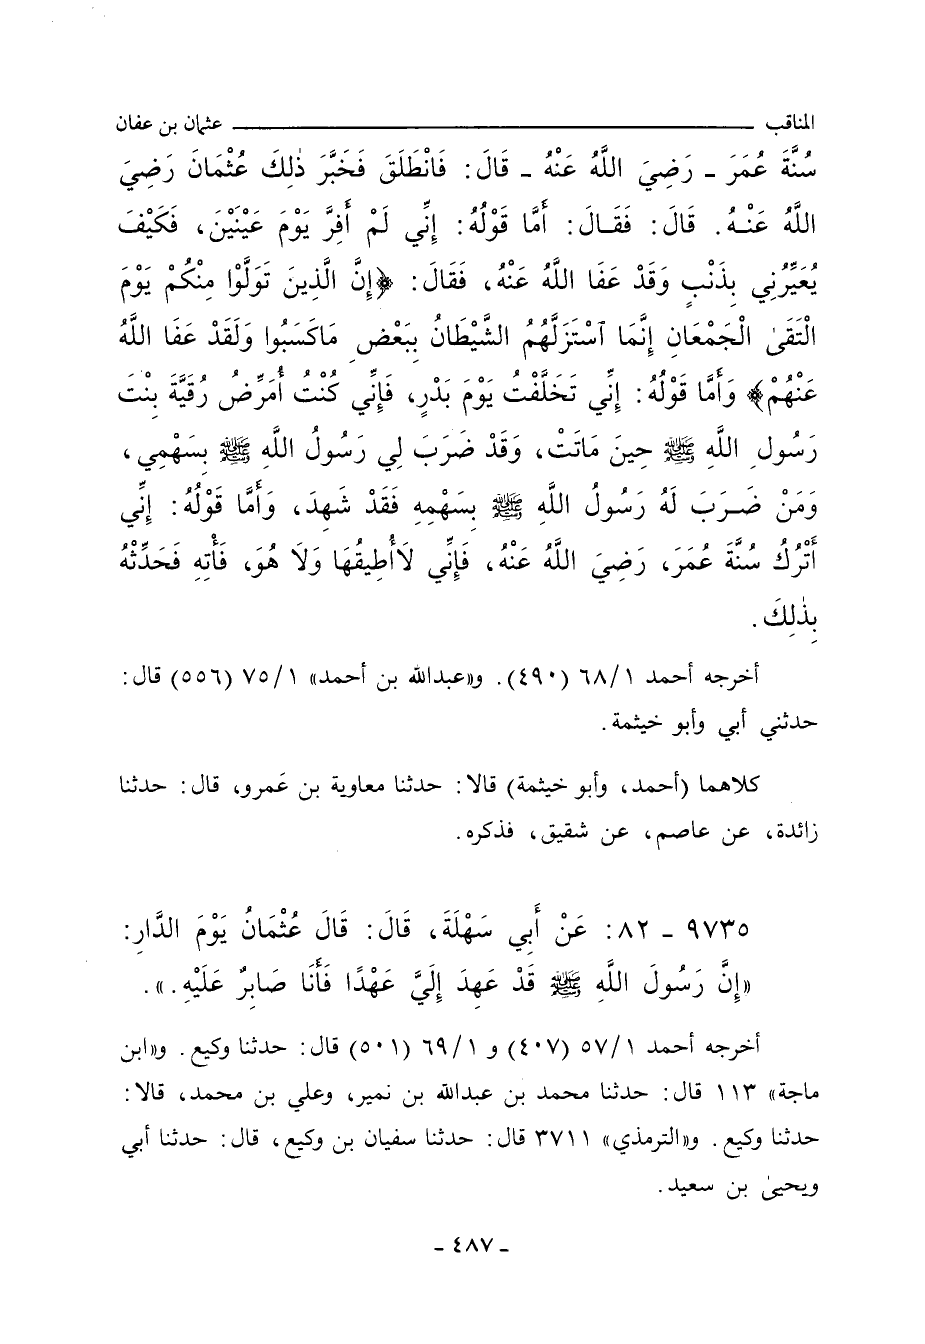 المناقب ــــــــــــــــــــــــــــــــ عثمان بن عفان
سُنَّةَ عُمَرَ ـ رَضِيَ اللَّهُ عَنْهُ ـ قَالَ: فَانْطَلَقَ فَخَبَّرَ ذٰلِكَ عُثْمَانَ رَضِيَ
اللَّهُ عَنْهُ. قَالَ: فَقَالَ: أَمَّا قَوْلُهُ: إِنِّي لَمْ أَفِرَّ يَوْمَ عَيْنَيْنَ، فَكَيْفَ
يُعَيِّرُنِي بِذَنْبٍ وَقَدْ عَفَا اللَّهُ عَنْهُ، فَقَالَ: ﴿إِنَّ الَّذِينَ تَوَلَّوْا مِنْكُمْ يَوْمَ
الْتَقَىٰ الْجَمْعَانِ إِنَّمَا ٱسْتَزَلَّهُمُ الشَّيْطَانُ بِبَعْضِ مَاكَسَبُوا وَلَقَدْ عَفَا اللَّهُ
عَنْهُمْ﴾ وَأَمَّا قَوْلُهُ: إِنِّي تَخَلَّفْتُ يَوْمَ بَدْرٍ، فَإِنِّي كُنْتُ أُمَرِّضُ رُقَيَّةَ بِنْتَ
رَسُولِ اللَّهِ ﷺ حِينَ مَاتَتْ، وَقَدْ ضَرَبَ لِي رَسُولُ اللَّهِ ﷺ بِسَهْمِي،
وَمَنْ ضَرَبَ لَهُ رَسُولُ اللَّهِ ﷺ بِسَهْمِهِ فَقَدْ شَهِدَ، وَأَمَّا قَوْلُهُ: إِنِّي
أَتْرُكُ سُنَّةَ عُمَرَ، رَضِيَ اللَّهُ عَنْهُ، فَإِنِّي لَاأُطِيقُهَا وَلَا هُوَ، فَأْتِهِ فَحَدِّثْهُ
بِذٰلِكَ.
أخرجه أحمد ٦٨/١ (٤٩٠). و«عبدالله بن أحمد» ٧٥/١ (٥٥٦) قال:
حدثني أبي وأبو خيثمة.
كلاهما (أحمد، وأبو خيثمة) قالا: حدثنا معاوية بن عَمرو، قال: حدثنا
زائدة، عن عاصم، عن شقيق، فذكره.
٩٧٣٥ ـ ٨٢: عَنْ أَبِي سَهْلَةَ، قَالَ: قَالَ عُثْمَانُ يَوْمَ الدَّارِ:
«إِنَّ رَسُولَ اللَّهِ ﷺ قَدْ عَهِدَ إِلَيَّ عَهْدًا فَأَنَا صَابِرٌ عَلَيْهِ.».
أخرجه أحمد ٥٧/١ (٤٠٧) و ٦٩/١ (٥٠١) قال: حدثنا وكيع. و«ابن
ماجة» ١١٣ قال: حدثنا محمد بن عبدالله بن نمير، وعلي بن محمد، قالا:
حدثنا وكيع. و«الترمذي» ٣٧١١ قال: حدثنا سفيان بن وكيع، قال: حدثنا أبي
ويحيىٰ بن سعيد.
ـ ٤٨٧ ـ